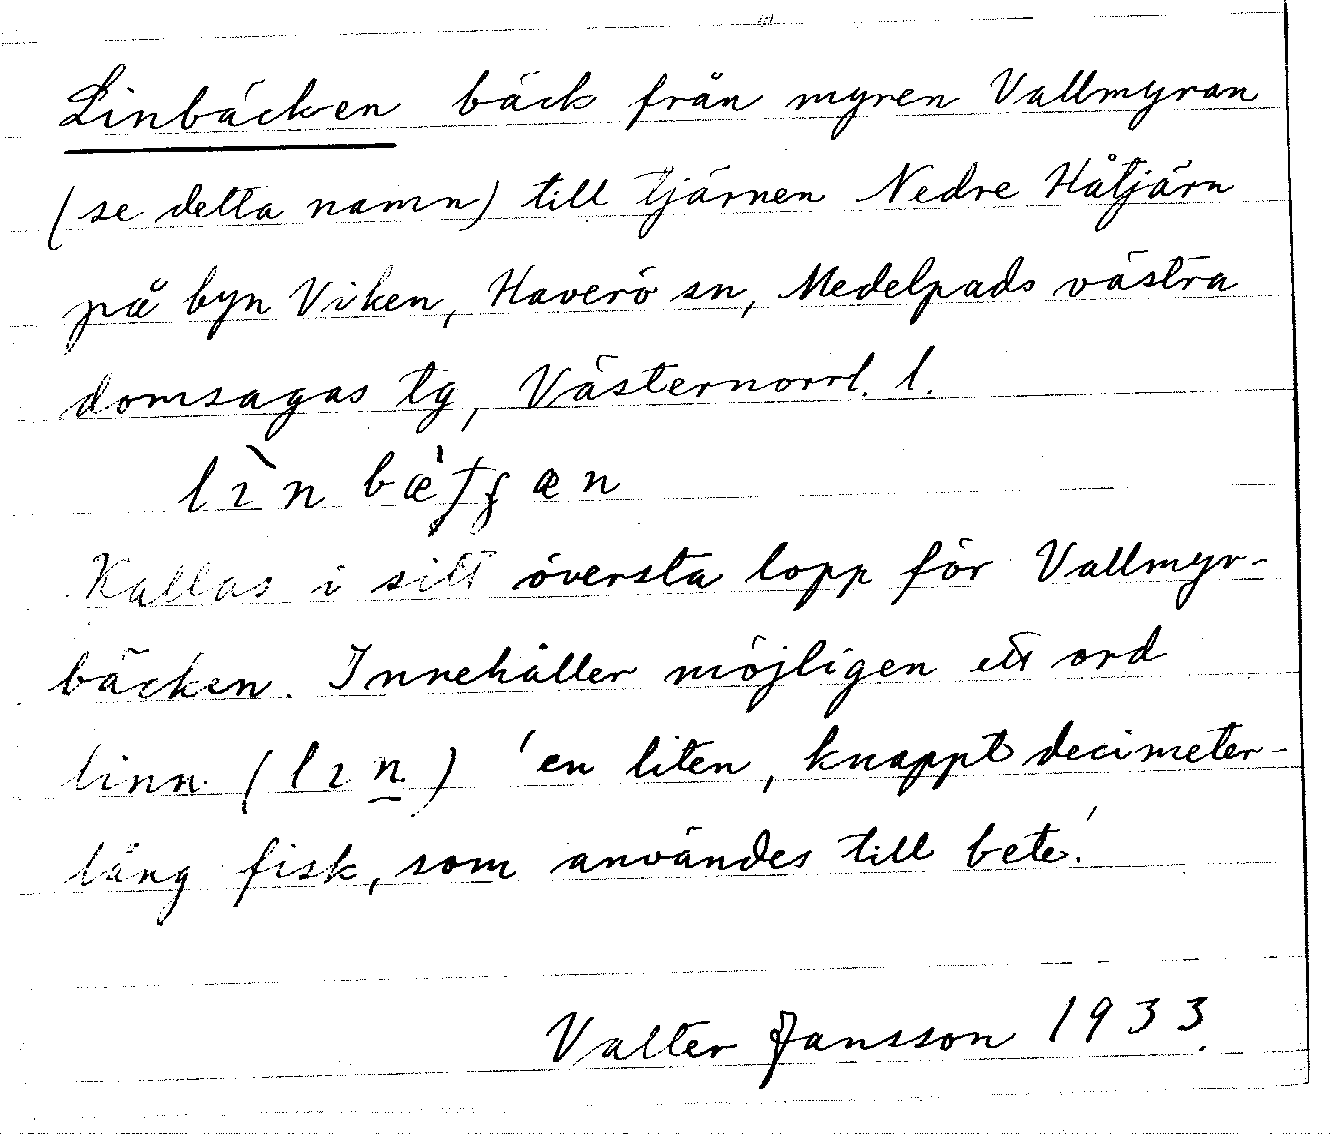 Linbäcken bäck från myren Vallmyran
(se detta namn) till tjärnen Nedre Håtjärn
på byn Viken, Haverö sn, Medelpads västra
domsagas tg, Västernorrl. l.
Kallas i sitt översta lopp för Vallmyr-
bäcken. Innehåller möjligen ett ord
linn (lın) 'en liten, knappt decimeter-
lång fisk, som användes till bete.'
Valter Jansson 1933.